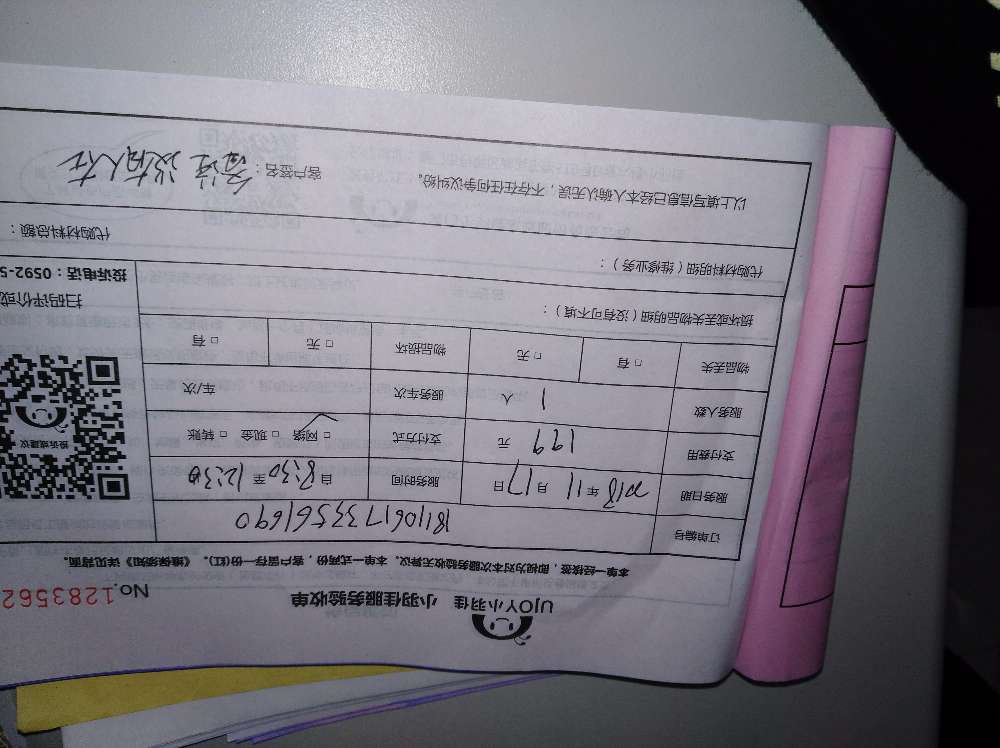 UJOY小羽佳 小羽佳服务验收单 No.1283562
本单一经接签,即视为对本次服务验收无异议。本单一式两份,客户留存一份(红)。《维保须知》详见背面。
订单编号 18110617335561690
服务日期 2018年11月17日 服务时间 自8:30至12:30
支付费用 199元 支付方式 □网络 □现金 □转账
服务人数 1人 服务车次 车/次
物品丢失 □有 □无 物品损坏 □无 □有
投诉或建议
扫码评价或
投诉电话:0592-5
损坏或丢失物品明细(没有可不填):
代购材料明细(维修业务):
代购材料总额:
以上填写信息已经本人确认无误,不存在任何争议纠纷。 客户签名:备注没有人在